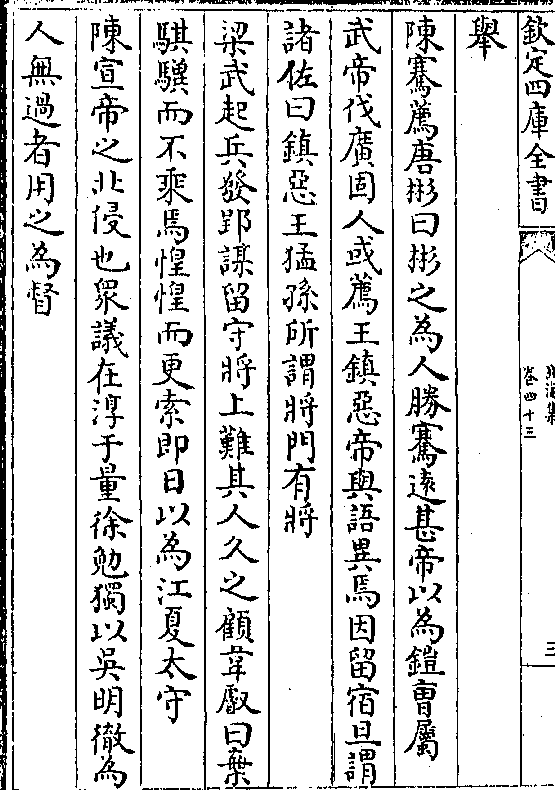 欽定四庫全書
北海集
卷四十三
三
舉
陳騫薦唐彬曰彬之為人勝騫遠甚帝以為鎧曹屬
武帝伐廣固人或薦王鎮惡帝與語異焉因留宿旦謂
諸佐曰鎮惡王猛孫所謂將門有將
梁武起兵發郢謀留守將上難其人久之顧韋叡曰棄
騏驥而不乘焉惶惶而更索即日以為江夏太守
陳宣帝之北侵也衆議在淳于量徐勉獨以吳明徹為
人無過者用之為督